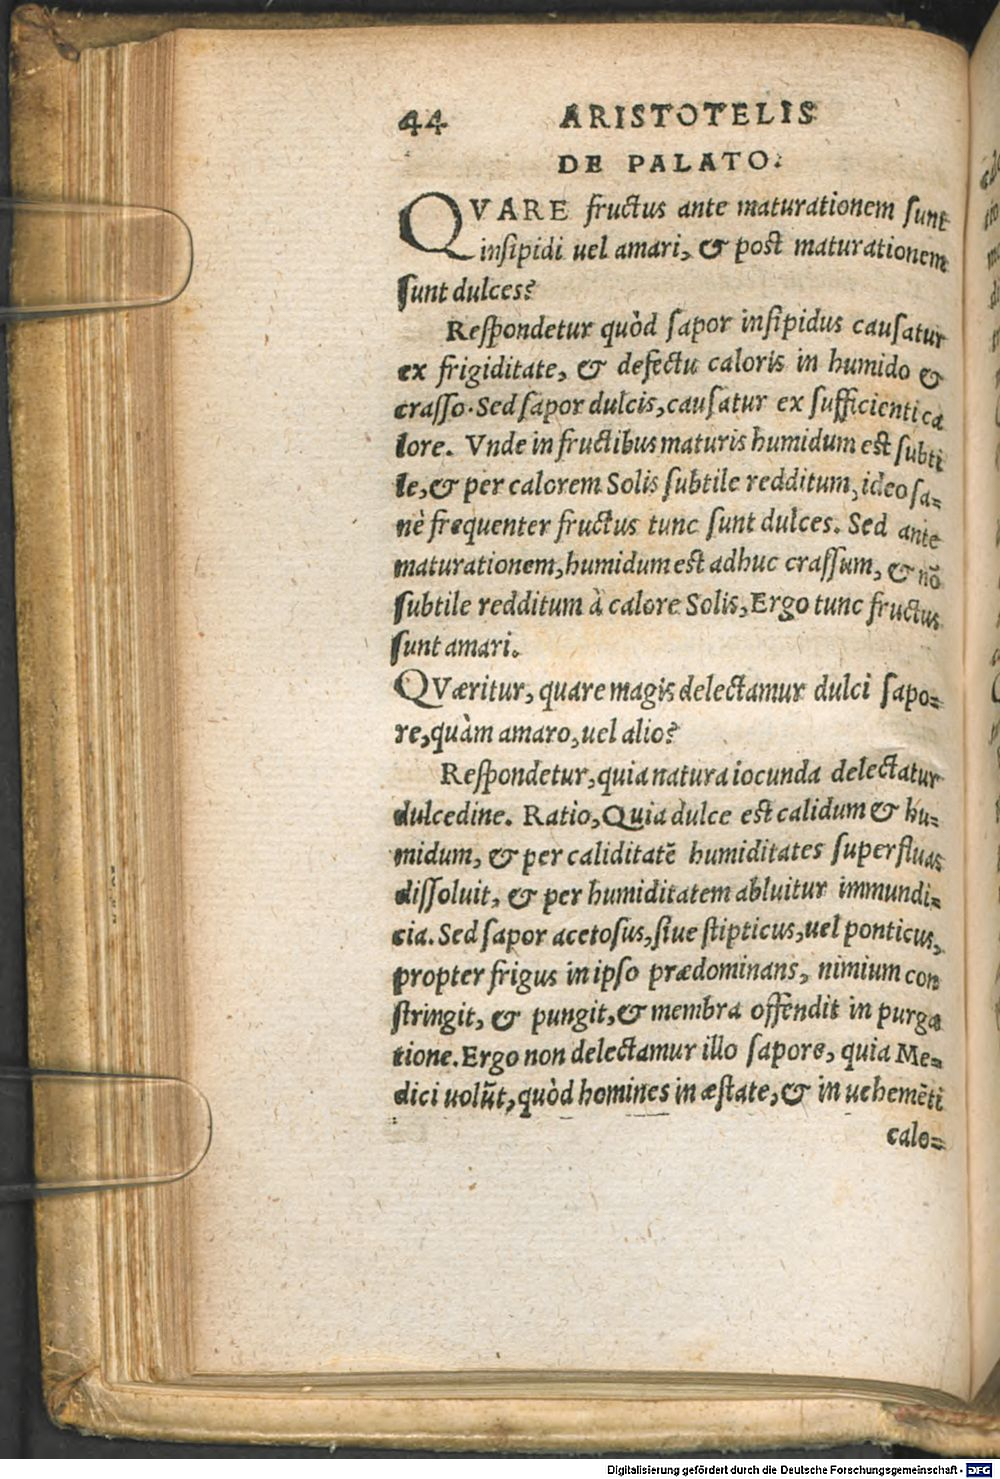 44 ARISTOTELIS
DE PALATO.
QVARE fructus ante maturationem sunt
insipidi uel amari, & post maturationem
sunt dulces?
Respondetur quòd sapor insipidus causatur
ex frigiditate, & defectu caloris in humido &
crasso. Sed sapor dulcis, causatur ex sufficienti ca
lore. Vnde in fructibus maturis humidum est subti
le, & per calorem Solis subtile redditum, ideo sa=
nè frequenter fructus tunc sunt dulces. Sed ante
maturationem, humidum est adhuc crassum, & nõ
subtile redditum à calore Solis, Ergo tunc fructus
sunt amari.
QVæritur, quare magis delectamur dulci sapo=
re, quàm amaro, uel alio?
Respondetur, quia natura iocunda delectatur
dulcedine. Ratio, Quia dulce est calidum & hu=
midum, & per caliditatẽ humiditates superfluas
dissoluit, & per humiditatem abluitur immundi=
cia. Sed sapor acetosus, siue stipticus, uel ponticus,
propter frigus in ipso prædominans, nimium con
stringit, & pungit, & membra offendit in purga
tione. Ergo non delectamur illo sapore, quia Me=
dici uolũt, quòd homines in æstate, & in uehemẽti
calo=
Digitalisierung gefördert durch die Deutsche Forschungsgemeinschaft - DFG